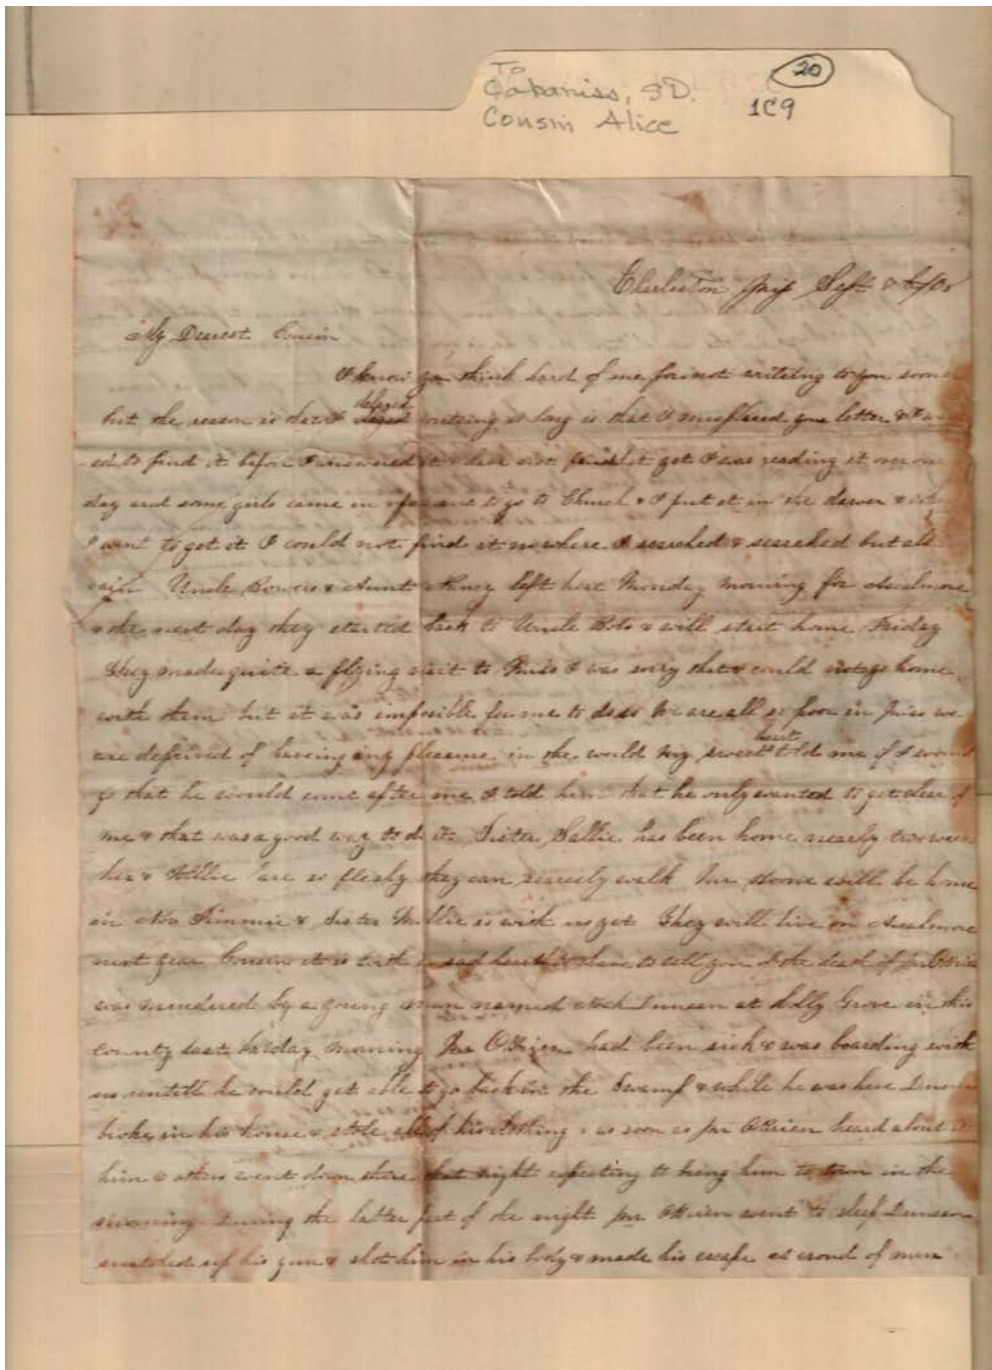 To
Cabaniss, S.D.
Cousin Alice
20
1C9
Charleston Miss Sept
My Dearest Cousin
I know you think hard of me for not writeing to you
but the reason is that I writeing so long is that I missplaced your letter &
to find it before I answered it & have not it yet I was reading it over one
day and some girls came in for me to go to Church & I put it in the &
I went to get it I could not find it no where. I searched & searched but all
vain Uncle Bowers & Aunt Nancy left here Monday morning for
& the next day they started back to Uncle Bobs & will start home Friday
They made quite a flying visit to Miss I was sorry that I could not go home
with them but it was impossible for me to do so We are all so poor in Miss we
are deprived of haveing any pleasure in the world my sweet heart told me if I would
go that he would come after me I told him that he only wanted to get clear of
me & that was a good way to do it. Sister Sallie has been home nearly two
her & Willie are so fleshy they can scarcely walk Mr will be home
in Nov Jimmie & Sister Mollie is with us yet They will live on
next year Cousin it is with a sad heart I have to tell you of the death of Mr O'Brien
was murdered by a young man named Duncan at Holly Grove in this
county last morning Mr O'Brien had been sick & was boarding with
us untill he could get able to go back in the Swamp & while he was here
broke in his house & stole all of his clothing & as soon as Mr O'Brien heard about it
him & others went down there that night expecting to bring him to town in the
morning During the latter part of the night Mr O'Brien went to sleep Duncan
snatched up his gun & shot him in his body & made his escape a crowd of men